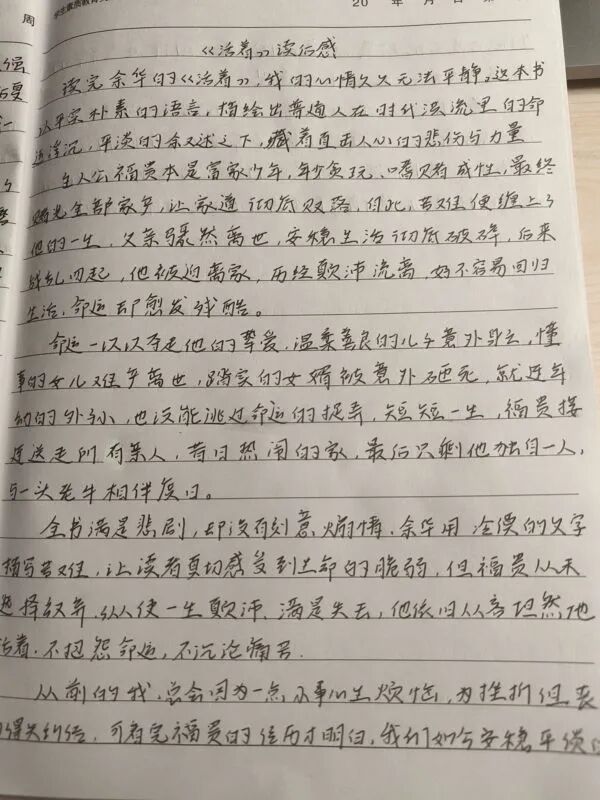 学生素质教育
20 年 月 日
周
《活着》读后感
读完余华的《活着》,我的心情久久无法平静。这本书
以平实朴素的语言,描绘出普通人在时代洪流里的命
运浮沉,平淡的叙述之下,藏着直击人心的悲伤与力量
主人公福贵本是富家少年,年少贪玩、嗜赌成性,最终
赌光全部家产,让家道彻底败落,自此,苦难便缠上了
他的一生,父亲骤然离世,安稳生活彻底破碎,后来
战乱四起,他被迫离家,历经颠沛流离,好不容易回归
生活,命运却愈发残酷。
命运一次次夺走他的挚爱,温柔善良的儿子意外身亡,懂
事的女儿难产离世,踏实的女婿被意外砸死,就连年
幼的外孙,也没能逃过命运的捉弄,短短一生,福贵接
连送走所有亲人,昔日热闹的家,最后只剩他独自一人,
与一头老牛相伴度日。
全书满是悲剧,却没有刻意煽情,余华用冷漠的文字
描写苦难,让读者真切感受到生命的脆弱,但福贵从未
选择放弃,纵使一生颠沛、满是失去,他依旧从容坦然地
活着,不抱怨命运,不沉沦痛苦.
从前的我,总会因为一点小事心生烦恼,为挫折但丧
得失纠结,可看完福贵的经历才明白,我们如今安稳平